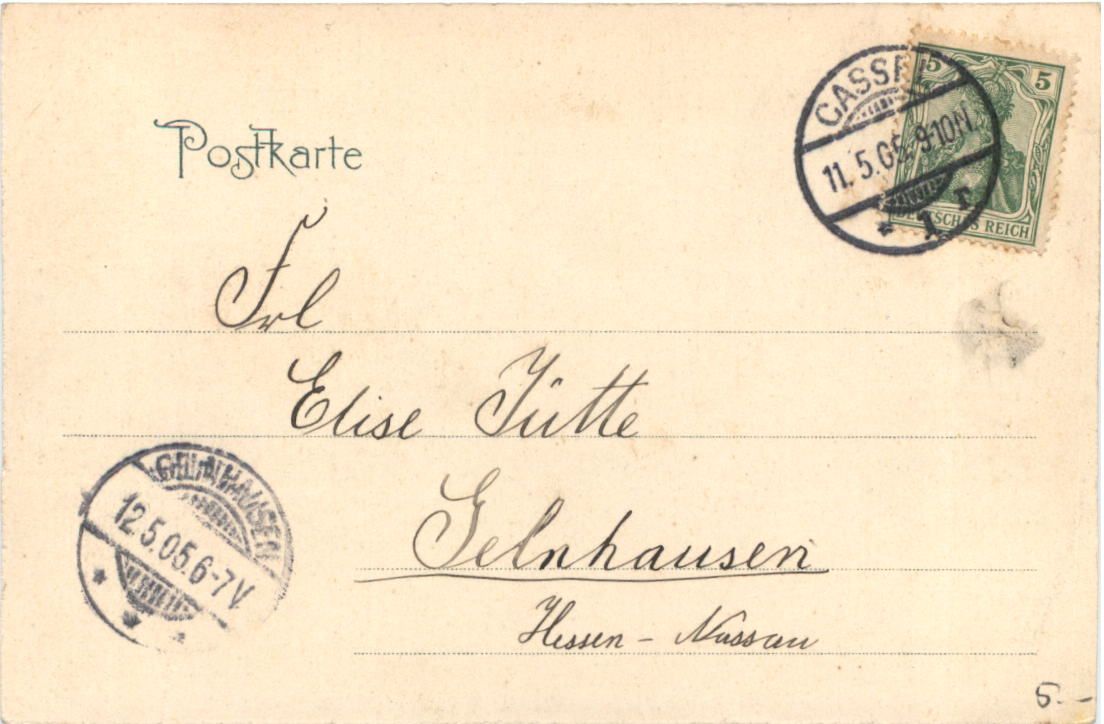 Postkarte
5 5
DEUTSCHES REICH
CASSEL
11.5.05. 9-10N.
* 1 r
Frl
Elise Jütte
Gelnhausen
Hessen - Nassau
GELNHAUSEN
12.5.05.6-7V.
* * *
5.-